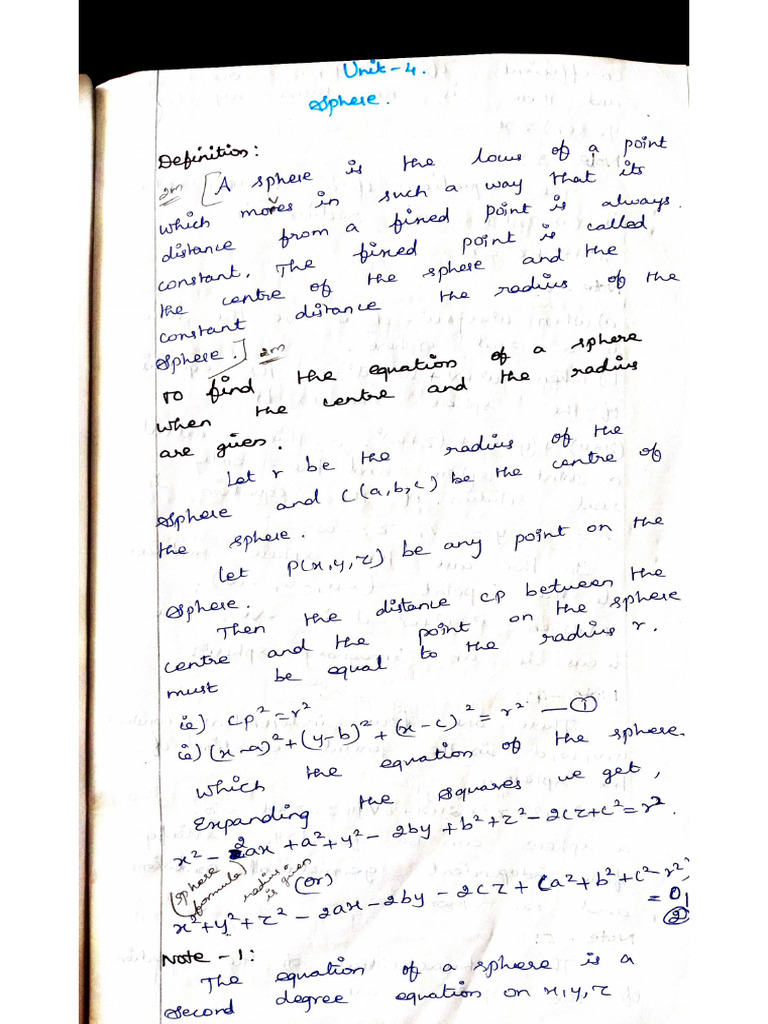 Unit-4.
Sphere.
Definition:
2m [A sphere is the locus of a point
which moves in such a way that its
distance from a fixed point is always
constant. The fixed point is called
the centre of the sphere and the
constant distance the radius of the
sphere.] 2m
To find the equation of a sphere
when the centre and the radius
are given.
Let r be the radius of the
sphere and C(a,b,c) be the centre of
the sphere.
Let P(x,y,z) be any point on the
sphere.
Then the distance CP between the
centre and the point on the sphere
must be equal to the radius r.
ie) CP² = r²
ie) (x-a)² + (y-b)² + (x-c)² = r² — ①
which the equation of the sphere.
Expanding the squares we get,
x² - 2ax + a² + y² - 2by + b² + z² - 2cz + c² = r².
(sphere formula) radius is given (or)
x² + y² + z² - 2ax - 2by - 2cz + (a² + b² + c² - r²)
= 0 ②
Note - 1:
The equation of a sphere is a
second degree equation on x,y,z